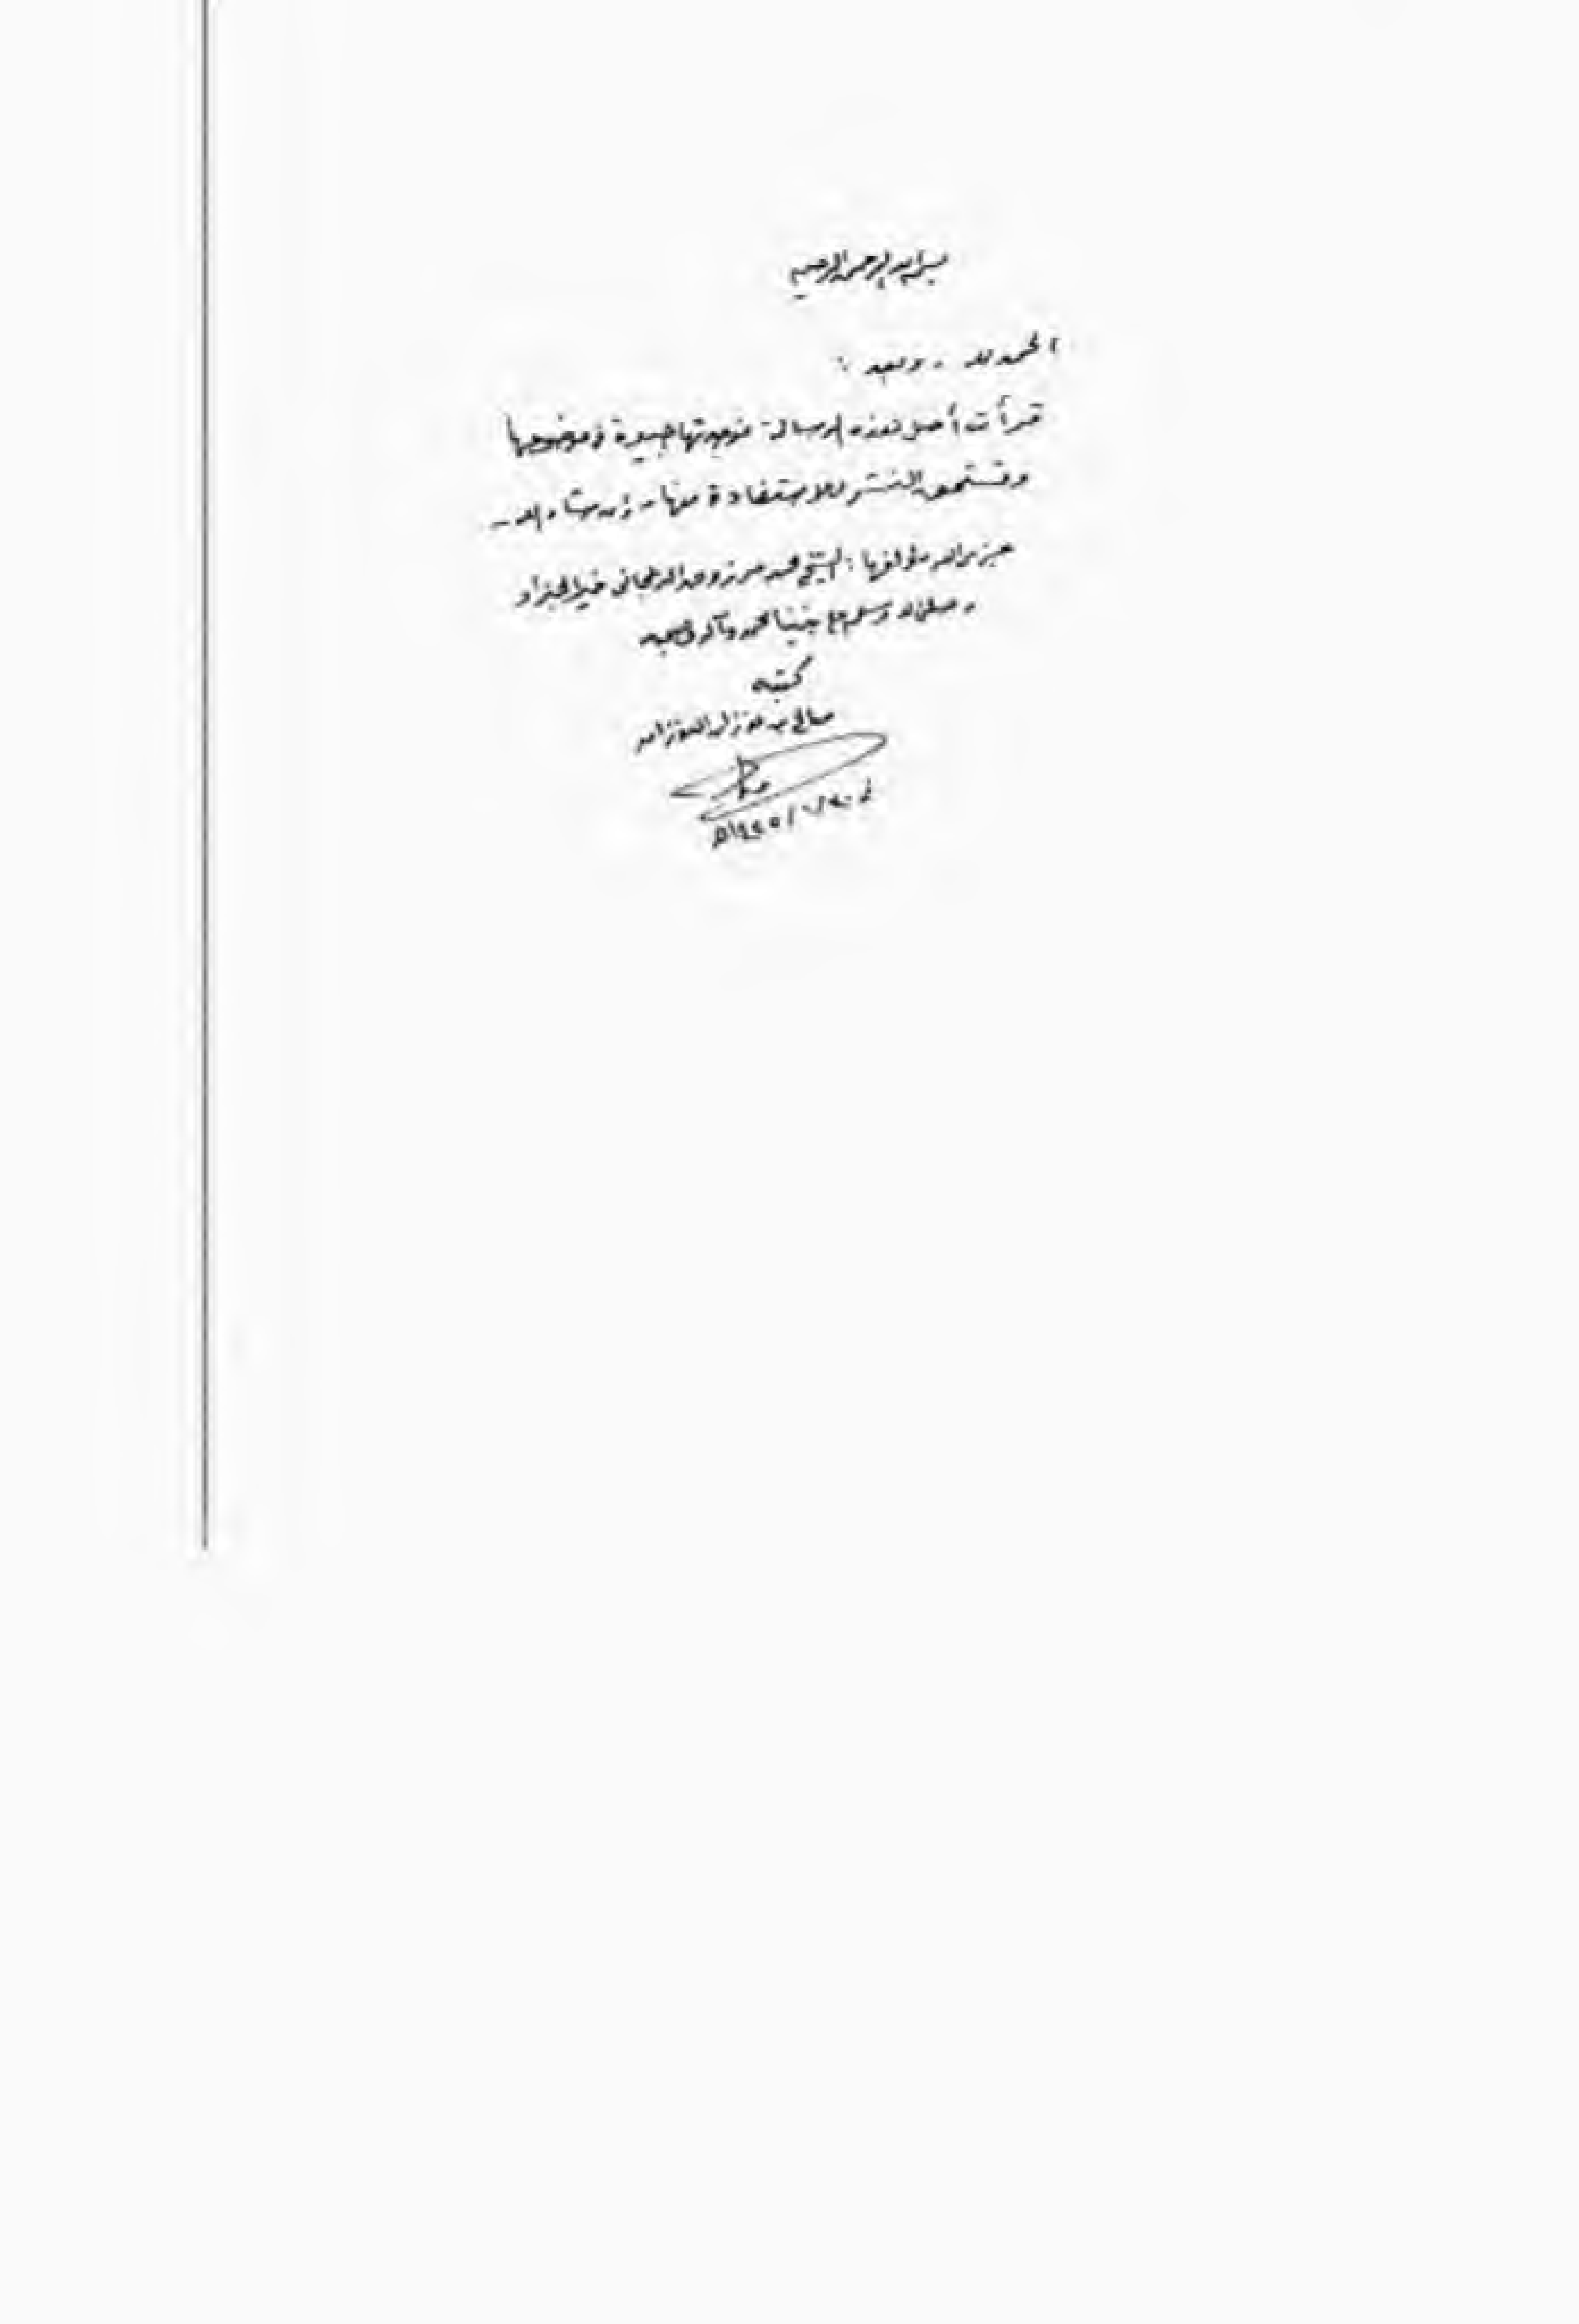 بسم الله الرحمن الرحيم
الحمد لله - وبعد :
قرأت أصل هذه الرسالة فوجدتها جيدة في موضوعها
وتستحق النشر للاستفادة منها - إن شاء الله -
جزى الله مؤلفها : الشيخ محمد خير الجزاء
وصلى الله وسلم على نبينا محمد وآله وصحبه
كتبه
صالح بن فوزان الفوزان
١٤٤٥هـ